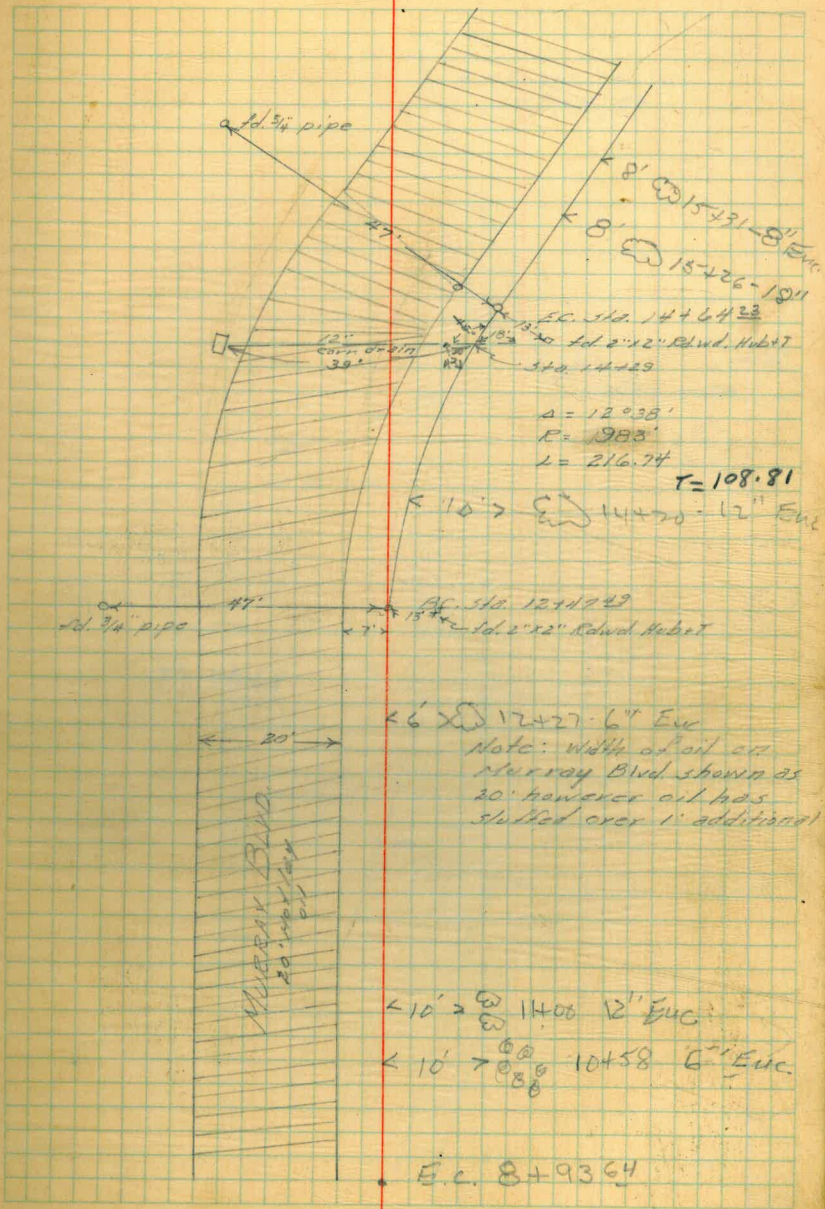 fd. 3/4" pipe
47'
8' 15+31-8" Euc.
8' 15+26-18"
E.C. Sta. 14+64 23
13'
fd. 2"x2" Rdwd. Hub+T
18'
Sta. 14+29
12"
corr. drain
39'
Δ = 12°38'
R = 983'
L = 216.74
T = 108.81
< 10' > 14+20 - 12" Euc
47'
B.C. Sta. 12+47 49
fd. 3/4" pipe
7'
13'
fd. 2"x2" Rdwd Hub+T
< 6' > 12+27-6" Euc
20'
Note: Width of oil on
Murray Blvd shown as
20' however oil has
sluffed over 1' additional
MURRAY BLVD.
20'
oil
< 10' > 11+06 12" Euc
< 10' > 10+58 6" Euc.
E.C. 8+93 64